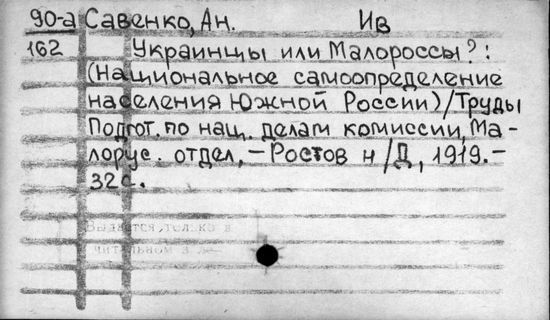 90-а Савенко, Ан. Ив
162 Украинцы или Малороссы?:
(Национальное самоопределение
населения Южной России)/Труды
Подгот. по нац. делам комиссии, Ма-
лорус. отдел, – Ростов н/Д, 1919.–
32с.
Выдается только в
читальном з